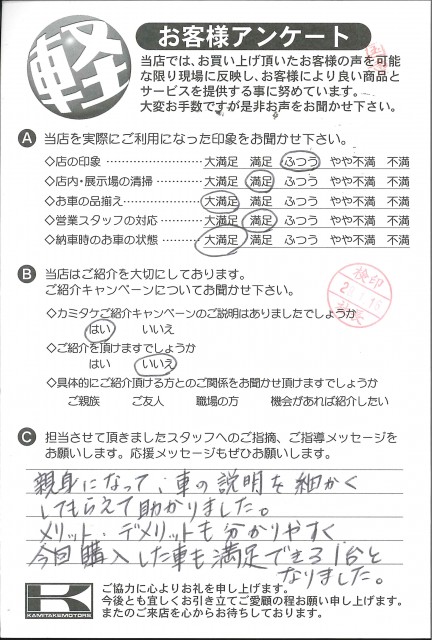 軽
お客様アンケート
当店では、お買い上げ頂いたお客様の声を可能
な限り現場に反映し、お客様により良い商品と
サービスを提供する事に努めています。
大変お手数ですが是非お声をお聞かせ下さい。
A 当店を実際にご利用になった印象をお聞かせ下さい。
◇店の印象 ………………… 大満足 満足 ふつう やや不満 不満
◇店内・展示場の清掃……… 大満足 満足 ふつう やや不満 不満
◇お車の品揃え……………… 大満足 満足 ふつう やや不満 不満
◇営業スタッフの対応……… 大満足 満足 ふつう やや不満 不満
◇納車時のお車の状態……… 大満足 満足 ふつう やや不満 不満
B 当店はご紹介を大切にしております。
ご紹介キャンペーンについてお聞かせ下さい。
検印
◇カミタケご紹介キャンペーンのご説明はありましたでしょうか
はい いいえ
◇ご紹介を頂けますでしょうか
はい いいえ
◇具体的にご紹介頂ける方とのご関係をお聞かせ頂けますでしょうか
ご親族 ご友人 職場の方 機会があれば紹介したい
C 担当させて頂きましたスタッフへのご指摘、ご指導メッセージを
お願いします。応援メッセージもぜひお願いします。
親身になって、車の説明を細かく
してもらえて助かりました。
メリット、デメリットも分かりやすく
今回購入した車も満足できる1台と
なりました。
K
KAMITAKEMOTORS
ご協力に心よりお礼を申し上げます。
今後とも宜しくお引き立てご愛顧の程お願い申し上げます。
またのご来店を心からお待ちしております。